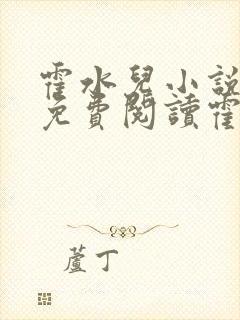 霍水兒小說
免費閱讀霍
蘆丁